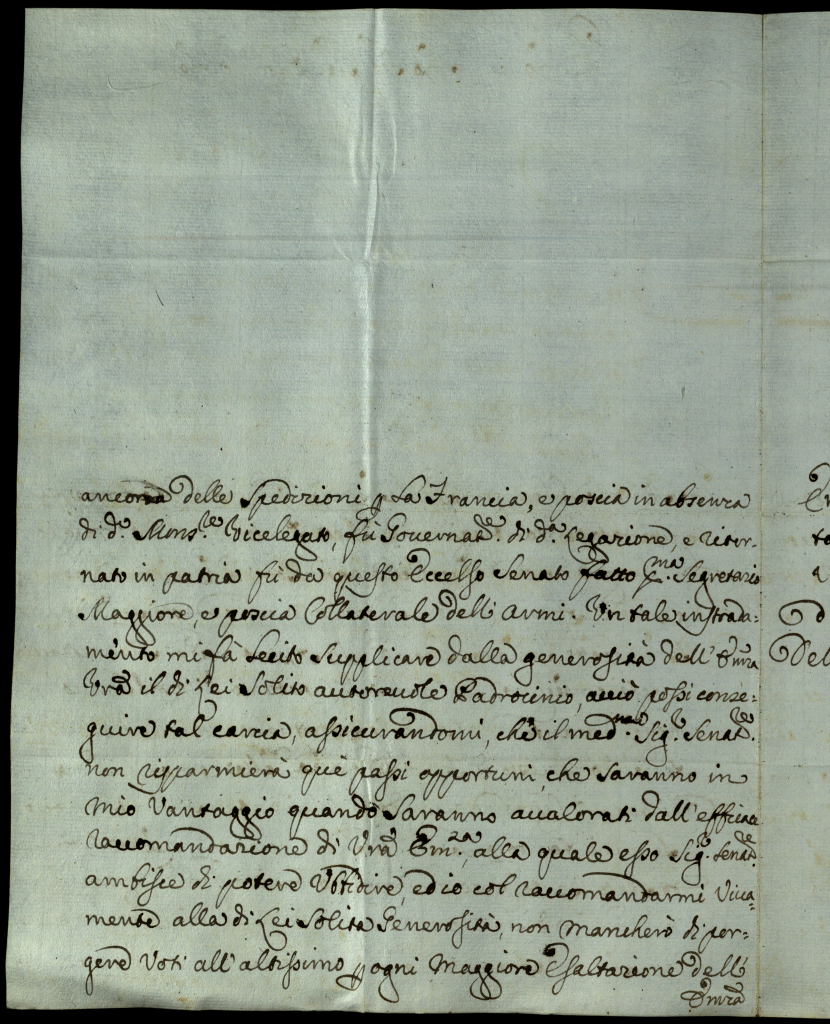 ancora delle Spedizioni p la Francia, e poscia in absenza
di d.º Mons.re Vicelegato, fù Governat.re di d.ª Legazione, e ritor=
nato in patria fù da questo Eccelso Senato fatto Segretario
Maggiore, e poscia Collaterale dell'Armi. Un tale instrada=
mento mi fà lecito supplicare dalla generosità dell'Emza
Vrã il di Lei Solito autorevole Padrocinio, acciò possi conse=
guire tal carcia, assicurandomi, che il med.mo Sig.r Senat.re
non risparmierà que passi opportuni, che saranno in
mio Vantaggio quando saranno avalorati dall'efficace
raccomandazione di Vrã Em.za, alla quale esso Sig.r Senat.re
ambisce di potere Vbbidire, ed io col raccomandarmi viva=
mente alla di Lei Solita Generosità, non mancherò di por=
gere Voti all'altissimo p ogni Maggiore Esaltazione dell'
Emza